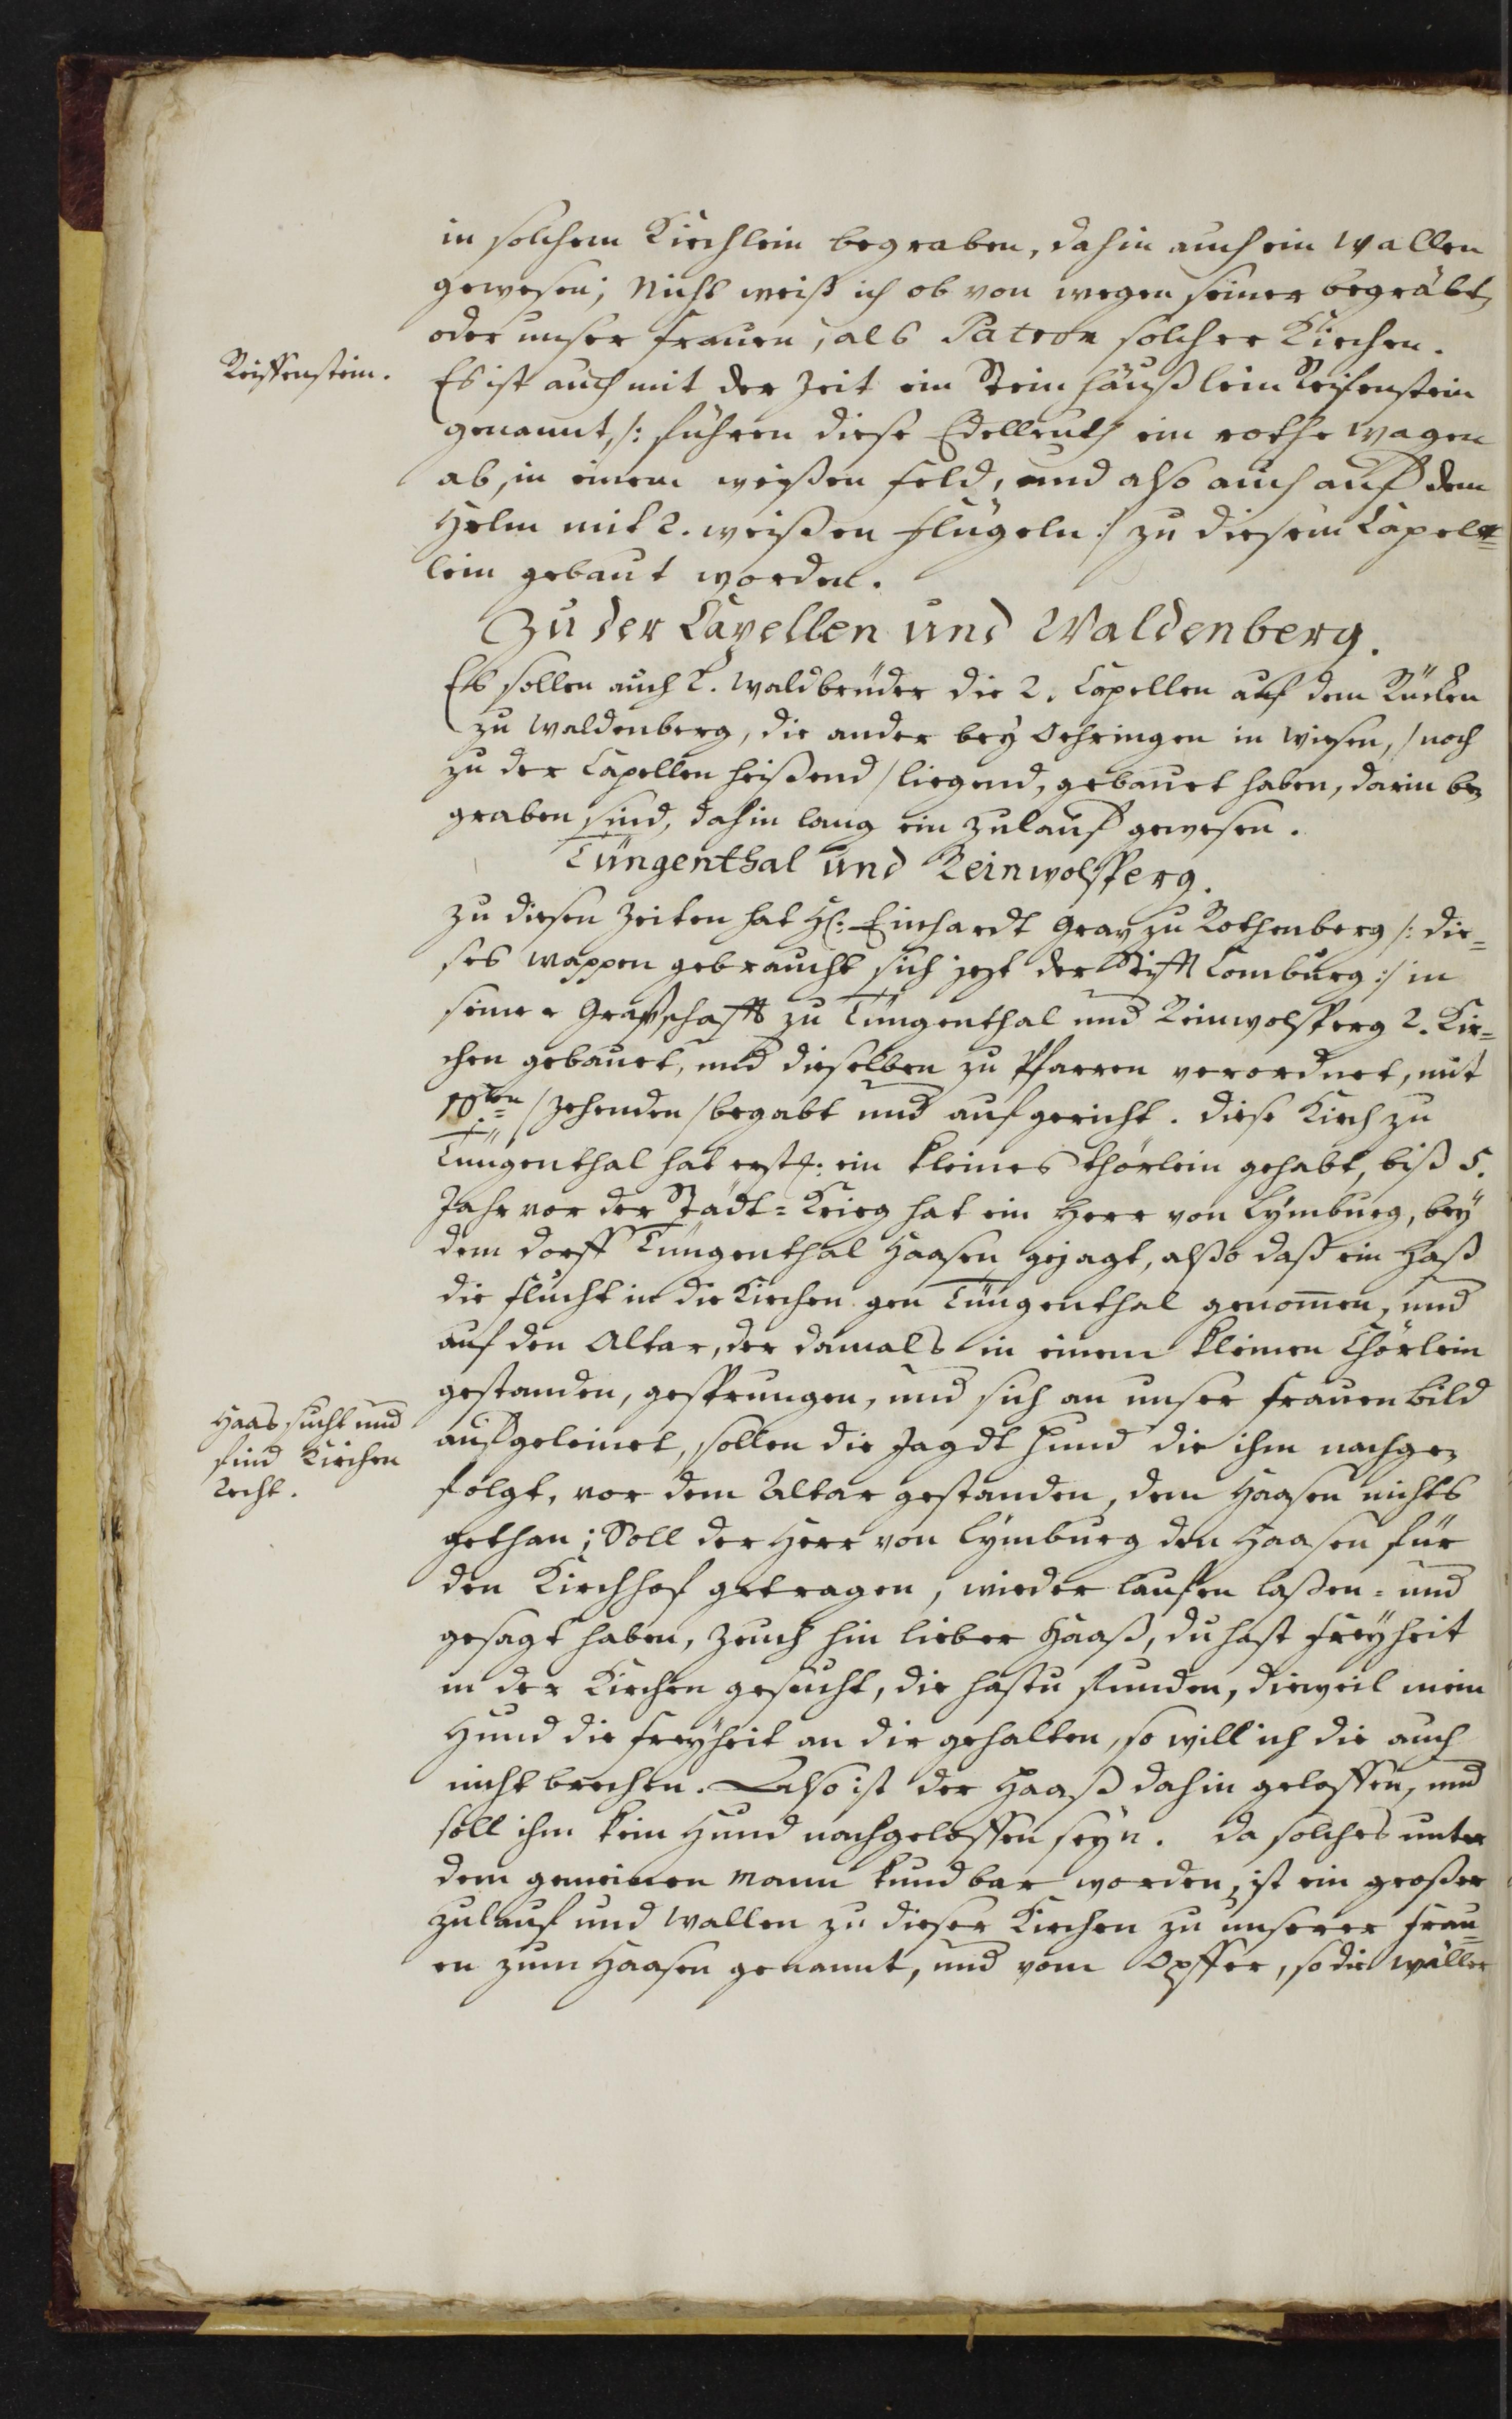 in solchem Kirchlein begraben, dahin auch ein wallen
gewesen; Nicht weiß ich ob von wegen seiner begräbt,
oder unser frauen, als Patron solcher Kirchen.
Reissenstein.
Es ist auch mit der Zeit ein Stein häußlein Reisenstein
genannt, /: führen diese Edelleuth ein rothe wagen
ab, in einem weißen feld, und also auch auf dem
Helm mit 2. weißen flügeln :/ zu diesem Capel=
lein gebaut worden.
Zu der Capellen und Waldenberg.
Es sollen auch 2. Waldbrüder die 2. Capellen auf dem Rücken
zu Waldenberg, die ander bey Oehringen in Wiesen, / noch
zu der Capellen heißend / liegend, gebauet haben, darin be
graben sind, dahin lang ein Zulauf gewesen.
Tüngenthal und Reinwolsperg.
Zu diesen Zeiten hat H: Einhardt Grav zu Rothenberg /: die=
ses wappen gebraucht sich jezt der Stifft Comburg :/ in
seiner Grafschafft zu Tüngenthal und Reinwolsperg 2. Kir=
chen gebauet, und dieselben zu Pfarren verordnet, mit
10den / Zehenden / begabt und aufgericht. diese Kirch zu
Tüngenthal hat erstl: ein kleines Chörlein gehabt, biß 5.
Jahr vor der Städt=Krieg hat ein Herr von Lymburg, bey
dem dorff Tüngenthal Haasen gejagt, also daß ein Haß
die flucht in die Kirchen gen Tüngenthal genom̄en, und
auf den Altar, der damals in einem kleinen Chörlein
gestanden, gesprungen, und sich an unser frauen bild
Haas sucht und
find Kirchen
Recht.
aufgeleinet, sollen die Jagdt Hund die ihm nachge
folgt, vor dem Altar gestanden, dem Haasen nichts
gethan; Soll der Herr von Lymburg den Haasen für
den Kirchhof getragen, wieder lauffen laßen= und
gesagt haben, Zeuch hin lieber Haaß, du hast freyheit
in der Kirchen gesucht, die hastu funden, dieweil mein
Hund die freyheit an dir gehalten, so will ich die auch
nicht brechen. Also ist der Haaß dahin geloffen, und
soll ihm kein Hund nachgeloffen seyn. da solches unter
dem gemeinen Mann kundbar worden, ist ein großer
Zulauf und Wallen zu dieser Kirchen zu unserer frau=
en zum Haasen genannt, und vom Opffer, so die Waller